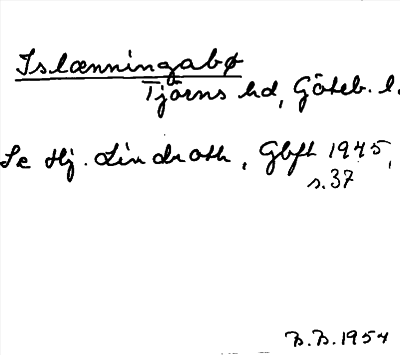 Islænningabø
Tjörns hd, Göteb. l.
Se Hj. Lindroth, Gbft 1945,
s. 37
B.B. 1954